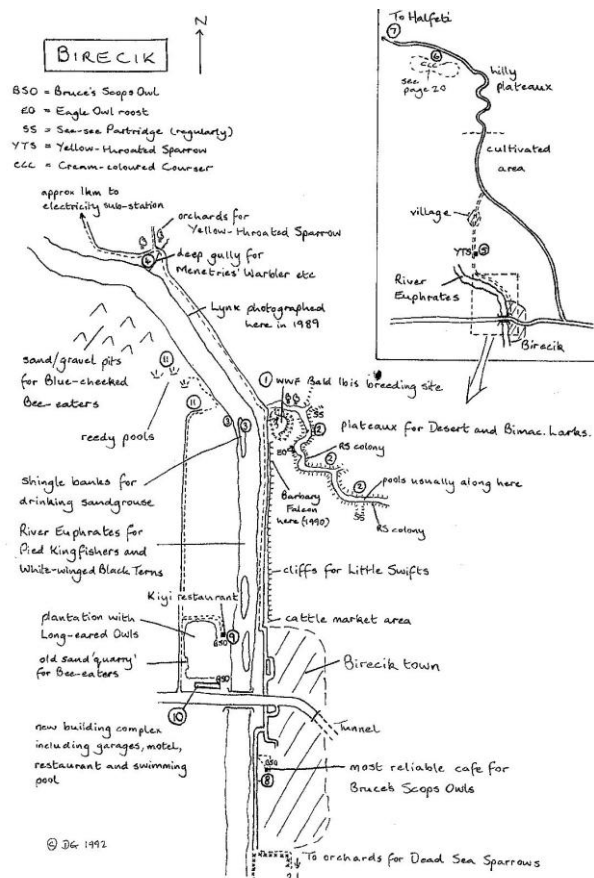 BIRECIK
N
BSO = Bruce's Scops Owl
EO = Eagle Owl roost
SS = See-see Partridge (regularly)
YTS = Yellow-throated Sparrow
CCC = Cream-coloured Courser
approx 1km to
electricity sub-station
orchards for
Yellow-throated Sparrow
4
deep gully for
Menetries' Warbler etc
Lynx photographed
here in 1989
sand/gravel pits
for Blue-cheeked
Bee-eaters
11
11
reedy pools
1
WWF Bald Ibis breeding site
SS
2
plateaux for Desert and Bimac. Larks.
EO
RS colony
2
2
pools usually along here
RS colony
SS
3
3
Shingle banks for
drinking sandgrouse
Barbary
Falcon
here (1990)
River Euphrates for
Pied Kingfishers and
White-winged Black Terns
cliffs for Little Swifts
Kiyi restaurant
cattle market area
plantation with
Long-eared Owls
9
BSO
old sand 'quarry'
for Bee-eaters
BSO
Birecik town
10
Tunnel
new building complex
including garages, motel,
restaurant and swimming
pool
BSO
8
most reliable cafe for
Bruce's Scops Owls
© DG 1992
To orchards for Dead Sea Sparrows
To Halfeti
7
6
CCC
see
page 20
hilly
plateaux
cultivated
area
village
YTS
5
River
Euphrates
Birecik